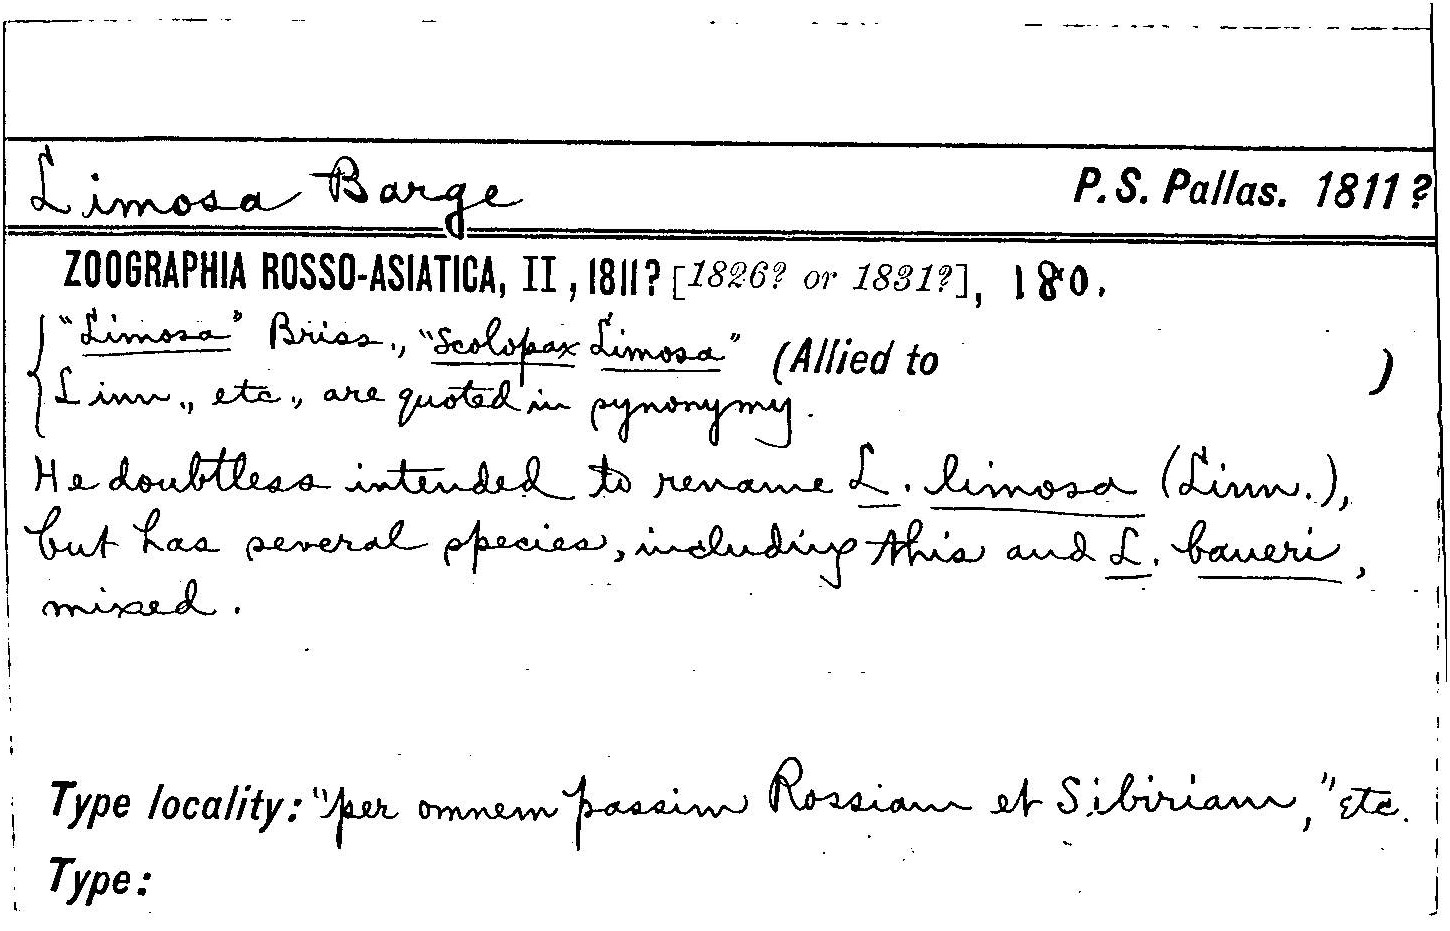 Limosa Barge P.S. Pallas. 1811?
ZOOGRAPHIA ROSSO-ASIATICA, II, 1811? [1826? or 1831?], 180.
"Limosa" Briss., "Scolopax Limosa" (Allied to )
Linn., etc., are quoted in synonymy.
He doubtless intended to rename L. limosa (Linn.),
but has several species, including this and L. baueri,
mixed.
Type locality: "per omnem passim Rossiam et Sibiriam," etc.
Type: